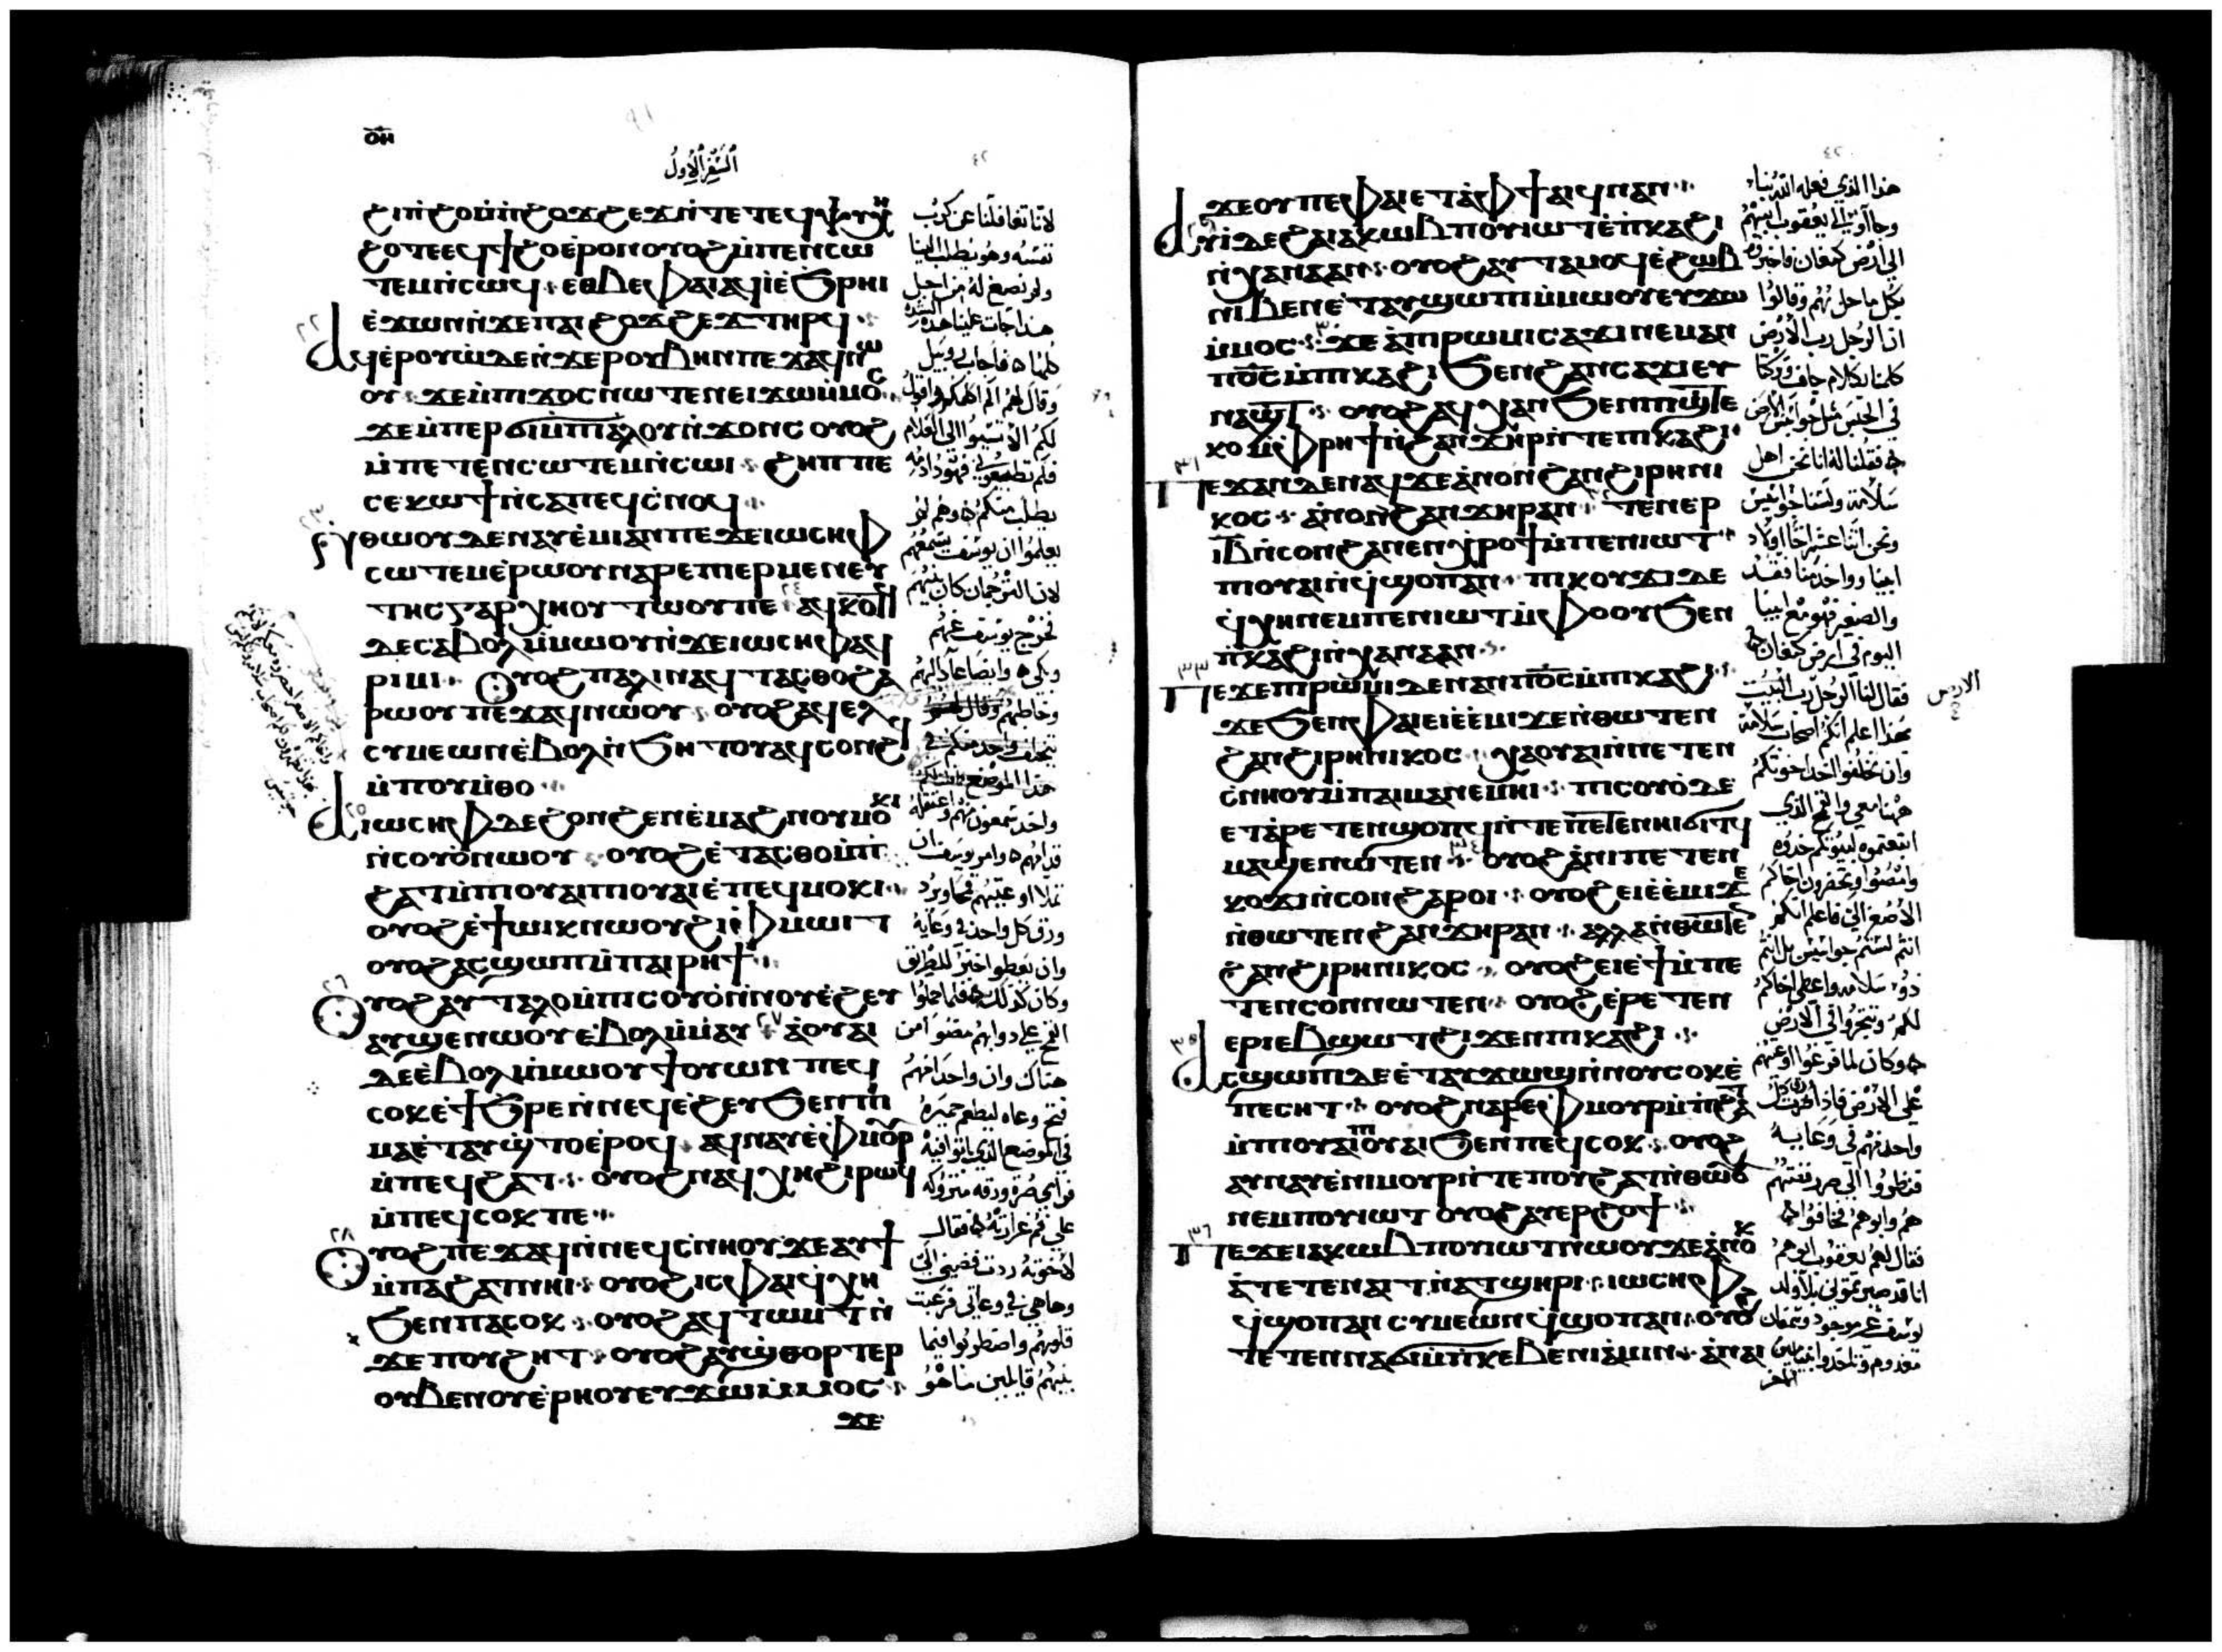 ⲟⲏ
السفر الاول
ϩⲓⲡϩⲟⲙⲡϩⲟϫϩⲉϫⲛⲧⲉⲧⲉϥⲯⲩⲭⲏ
ϩⲟⲧⲉⲉϥϯϩⲟⲉⲣⲟⲛⲟⲩⲟϩⲙⲡⲉⲛⲥⲱ
ⲧⲉⲙⲛⲥⲱϥ ⲉⲑⲃⲉⲫⲁⲓⲁϥⲓⲉϧⲣⲏⲓ
ⲉϫⲱⲛⲛϫⲉⲡⲁⲓϩⲟϫϩⲉϫⲧⲏⲣϥ
ⲁϥⲉⲣⲟⲩⲱⲇⲉⲛϫⲉⲣⲟⲩⲃⲏⲛⲡⲉϫⲁϥⲛⲱ
ⲟⲩ ϫⲉⲙⲡⲓϫⲟⲥⲛⲱⲧⲉⲛⲉⲓϫⲱⲙⲙⲟⲥ
ϫⲉⲙⲡⲉⲣϭⲓⲙⲡⲓⲁⲗⲟⲩⲛϫⲟⲛⲥⲟⲩⲟϩ
ⲙⲡⲉⲧⲉⲛⲥⲱⲧⲉⲙⲛⲥⲱⲓ ϩⲏⲡⲡⲉ
ⲥⲉⲕⲱϯⲛⲥⲁⲡⲉϥⲥⲛⲟϥ
ⲛⲑⲱⲟⲩⲇⲉⲛⲁⲩⲉⲙⲓⲁⲛⲡⲉϫⲉⲓⲱⲥⲏⲫ
ⲥⲱⲧⲉⲙⲉⲣⲱⲟⲩⲛⲁⲣⲉⲡⲓⲉⲣⲙⲉⲛⲉⲩ
ⲧⲏⲥⲅⲁⲣⲭⲏⲟⲩⲧⲱⲟⲩⲡⲉ ⲁϥⲕⲟⲧϥ
ⲇⲉⲥⲁⲃⲟⲗⲙⲙⲱⲟⲩⲛϫⲉⲓⲱⲥⲏⲫⲁϥ
ⲣⲓⲙⲓ ⲟⲩⲟϩⲡⲁⲗⲓⲛⲁϥⲧⲁⲥⲑⲟϩⲁ
ⲣⲱⲟⲩⲡⲉϫⲁϥⲛⲱⲟⲩ ⲟⲩⲟϩⲁϥⲉⲗ
ⲥⲩⲙⲉⲱⲛⲉⲃⲟⲗⲛϧⲏⲧⲟⲩⲁϥⲥⲟⲛϩϥ
ⲙⲡⲟⲩⲙⲑⲟ
ⲁⲓⲱⲥⲏⲫⲇⲉϩⲟⲛϩⲉⲛⲉⲙⲁϩⲛⲟⲩⲙⲟⲕⲓ
ⲛⲥⲟⲩⲟⲛⲱⲟⲩ ⲟⲩⲟϩⲉⲧⲁⲥⲑⲟⲙⲡⲓ
ϩⲁⲧⲙⲡⲓⲟⲩⲁⲓⲡⲓⲟⲩⲁⲓⲉⲡⲉϥⲙⲟⲕⲓ
ⲟⲩⲟϩⲉϯⲱⲓⲕⲛⲱⲟⲩϩⲓⲫⲙⲱⲓⲧ
ⲟⲩⲟϩⲁⲥϣⲱⲡⲓⲙⲡⲁⲓⲣⲏϯ
ⲟⲩⲟϩⲁⲩⲧⲁⲗⲟⲙⲡⲓⲥⲟⲩⲟⲛⲛⲟⲩⲉϩⲉⲩ
ⲁⲩϣⲉⲛⲱⲟⲩⲉⲃⲟⲗⲙⲙⲁⲩ ⲁⲟⲩⲁⲓ
ⲇⲉⲉⲃⲟⲗⲙⲙⲱⲟⲩϯⲟⲩⲱⲛⲡⲉϥ
ⲥⲟⲕⲉϯϧⲣⲉⲛⲛⲉϥⲉϩⲉⲩϧⲉⲛⲡⲓ
ⲙⲁⲉⲧⲁⲩϣⲧⲟⲉⲣⲟϥ ⲁϥⲛⲁⲩⲉⲫⲙⲟⲣ
ⲙⲡⲉϥϩⲁⲧ ⲟⲩⲟϩⲛⲁϥⲭⲏϩⲓⲣⲱϥ
ⲙⲡⲉϥⲥⲟⲕⲡⲉ
ⲟⲩⲟϩⲡⲉϫⲁϥⲛⲛⲉϥⲥⲛⲏⲟⲩϫⲉⲁⲩϯ
ⲙⲡⲁϩⲁⲧⲛⲏⲓ ⲟⲩⲟϩⲓⲥⲫⲁⲓϥⲭⲏ
ϧⲉⲛⲡⲁⲥⲟⲕ ⲟⲩⲟϩⲁϥⲧⲱⲙⲧⲛ
ϫⲉⲡⲟⲩϩⲏⲧ ⲟⲩⲟϩⲁⲩϣⲑⲟⲣⲧⲉⲣ
ⲟⲩⲃⲉⲛⲟⲩⲉⲣⲏⲟⲩⲉⲩϫⲱⲙⲙⲟⲥ
ϫⲉ
لاننا تغافلنا عن كرب
نفسه وهو يطلب الينا
ولم نصغ له من اجل
هذا جات علينا هذه الشدة
كلها فاجاب روبيل
وقال لهم الم اكلمكم واقول
لكم الا تسيوا الى الغلام
فلم تطيعوني فهوذا دمه
يطلب منكم وهم لم
يعلموا ان يوسف يسمعهم
لان الترجمان كان بينهم
فخرج يوسف عنهم
وبكى وايضا عاد اليهم
وخاطبهم وقال
واخذ شمعون منهم واعتقله
قدامهم وامر يوسف ان
تملا اوعيتهم قمحا وترد
ورق كل واحد في وعايه
وان يعطوا خبزا للطريق
وكان كذلك فلما حملوا
القمح على دوابهم مضوا من
هناك وان واحدا منهم
فتح وعاه ليطعم حميره
في الموضع الذي اتوا فيه
فراى صرة ورقه متروكه
على فم غرارته فقال
لاخوته ردت فضتي الي
وها هي في وعائي فرعبت
قلوبهم واضطربوا فيما
بينهم قايلين ما هو
ϫⲉⲟⲩⲡⲉⲫⲁⲓⲉⲧⲁⲫϯⲁⲓϥⲛⲁⲛ
ⲁⲩⲓⲇⲉϩⲁⲓⲁⲕⲱⲃⲡⲟⲩⲓⲱⲧⲉⲡⲕⲁϩⲓ
ⲛⲭⲁⲛⲁⲁⲛ ⲟⲩⲟϩⲁⲩⲧⲁⲙⲟϥⲉϩⲱⲃ
ⲛⲓⲃⲉⲛⲉⲧⲁⲩϣⲱⲡⲓⲙⲙⲱⲟⲩⲉⲩϫⲱ
ⲙⲙⲟⲥ ϫⲉⲁⲡⲓⲣⲱⲙⲓⲥⲁϫⲓⲛⲉⲙⲁⲛ
ⲡϭⲥⲙⲡⲓⲕⲁϩⲓϧⲉⲛϩⲁⲛⲥⲁϫⲓⲉⲩ
ⲛⲁϣⲧ ⲟⲩⲟϩⲁϥⲭⲁⲛϧⲉⲛⲡⲓϣⲧⲉ
ⲕⲟⲙⲫⲣⲏϯⲛϩⲁⲛϫⲏⲣⲛⲧⲉⲡⲓⲕⲁϩⲓ
ⲡⲉϫⲁⲛⲇⲉⲛⲁϥϫⲉⲁⲛⲟⲛϩⲁⲛϩⲓⲣⲏⲛⲓ
ⲕⲟⲥ ⲁⲛⲟⲛϩⲁⲛϫⲏⲣⲁⲛ ⲧⲉⲛⲉⲣ
ⲓⲃⲛⲥⲟⲛϩⲁⲛⲉⲛⲭⲣⲟϯⲙⲡⲉⲛⲓⲱⲧ
ⲡⲓⲟⲩⲁⲓⲛϥϣⲟⲡⲁⲛ ⲡⲓⲕⲟⲩϫⲓⲇⲉ
ϥⲭⲏⲛⲉⲙⲡⲉⲛⲓⲱⲧⲙⲫⲟⲟⲩϧⲉⲛ
ⲡⲕⲁϩⲓⲛⲭⲁⲛⲁⲁⲛ
ⲡⲉϫⲉⲡⲓⲣⲱⲙⲓⲇⲉⲛⲁⲛⲡϭⲥⲙⲡⲓⲕⲁϩⲓ
ϫⲉϧⲉⲛⲫⲁⲓⲉⲓⲉⲉⲙⲓϫⲉⲛⲑⲱⲧⲉⲛ
ϩⲁⲛϩⲓⲣⲏⲛⲓⲕⲟⲥ ⲭⲁⲟⲩⲁⲓⲛⲡⲉⲧⲉⲛ
ⲥⲛⲏⲟⲩⲙⲡⲁⲓⲙⲁⲛⲉⲙⲏⲓ ⲡⲓⲥⲟⲩⲟⲇⲉ
ⲉⲧⲁⲣⲉⲧⲉⲛϣⲟⲡϥⲛⲧⲉⲡⲉⲧⲉⲛⲏⲓϭⲓⲧϥ
ⲙⲁϣⲉⲛⲱⲧⲉⲛ ⲟⲩⲟϩⲁⲛⲓⲡⲉⲧⲉⲛ
ⲕⲟⲩϫⲓⲛⲥⲟⲛϩⲁⲣⲟⲓ ⲟⲩⲟϩⲉⲓⲉⲉⲙⲓϫⲉ
ⲛⲑⲱⲧⲉⲛϩⲁⲛϫⲏⲣⲁⲛ ⲁⲗⲗⲁⲛⲑⲱⲧⲉ
ϩⲁⲛϩⲓⲣⲏⲛⲓⲕⲟⲥ ⲟⲩⲟϩⲉⲓⲉϯⲙⲡⲉ
ⲧⲉⲛⲥⲟⲛⲛⲱⲧⲉⲛ ⲟⲩⲟϩⲉⲣⲉⲧⲉⲛ
ⲉⲣⲓⲉⲃϣⲱⲧϩⲓϫⲉⲛⲡⲓⲕⲁϩⲓ
ⲁⲥϣⲱⲡⲓⲇⲉⲉⲧⲁⲩϫⲱϣⲛⲛⲟⲩⲥⲟⲕⲉ
ⲡⲉⲥⲏⲧ ⲟⲩⲟϩⲛⲁⲣⲉⲫⲙⲟⲩⲣⲙⲡϩⲁⲧ
ⲙⲡⲓⲟⲩⲁⲓⲡⲓⲟⲩⲁⲓϧⲉⲛⲡⲉϥⲥⲟⲕ ⲟⲩⲟϩ
ⲁⲩⲛⲁⲩⲉⲛⲓⲙⲟⲩⲣⲛⲧⲉⲡⲟⲩϩⲁⲧⲛⲑⲱⲟⲩ
ⲛⲉⲙⲡⲟⲩⲓⲱⲧ ⲟⲩⲟϩⲁⲩⲉⲣϩⲟϯ
ⲡⲉϫⲉⲓⲁⲕⲱⲃⲡⲟⲩⲓⲱⲧⲛⲱⲟⲩϫⲉⲁⲛⲟⲕ
ⲁⲧⲉⲧⲉⲛⲁⲓⲧⲛⲁⲧϣⲏⲣⲓ ⲓⲱⲥⲏⲫ
ϥϣⲟⲡⲁⲛⲥⲩⲙⲉⲱⲛϥϣⲟⲡⲁⲛ ⲟⲩⲟϩ
ⲧⲉⲧⲉⲛⲛⲁϭⲓⲙⲡⲕⲉⲃⲉⲛⲓⲁⲙⲓⲛ ⲁⲛⲁⲓ
هذا الذي فعله الله بنا
وجاوا الى يعقوب ابيهم
الى ارض كنعان فاخبروه
بكل ما حل بهم وقالوا
ان الرجل رب الارض
كلمنا بكلام جاف وتركنا
في الحبس مثل جواسيس الارض
فقلنا له اننا نحن اهل
سلامة ولسنا جواسيس
ونحن اثنا عشر اخا اولاد
ابينا وواحد منا فقد
والصغير فهو مع ابينا
اليوم في ارض كنعان
فقال لنا الرجل رب البيت
الارض
بهذا اعلم انكم اصحاب سلامة
وان تخلفوا احد اخوتكم
ههنا معي والقمح الذي
ابتعتموه لبيوتكم خذوه
وامضوا وتحضرون اخاكم
الاصغر الي فاعلم انكم
انتم لستم جواسيس بل انتم
ذوو سلامه واعطي اخاكم
لكم وتتجروا في الارض
وكان لما فرغوا اوعيتهم
على الارض فاذا صرة كل
واحد منهم في وعايه
فنظروا الى صرر فضتهم
هم وابوهم فخافوا
فقال لهم يعقوب ابوهم
انا قد صيرتموني بلا ولد
يوسف غير موجود وشمعان
معدوم وتاخذوا بنيامين